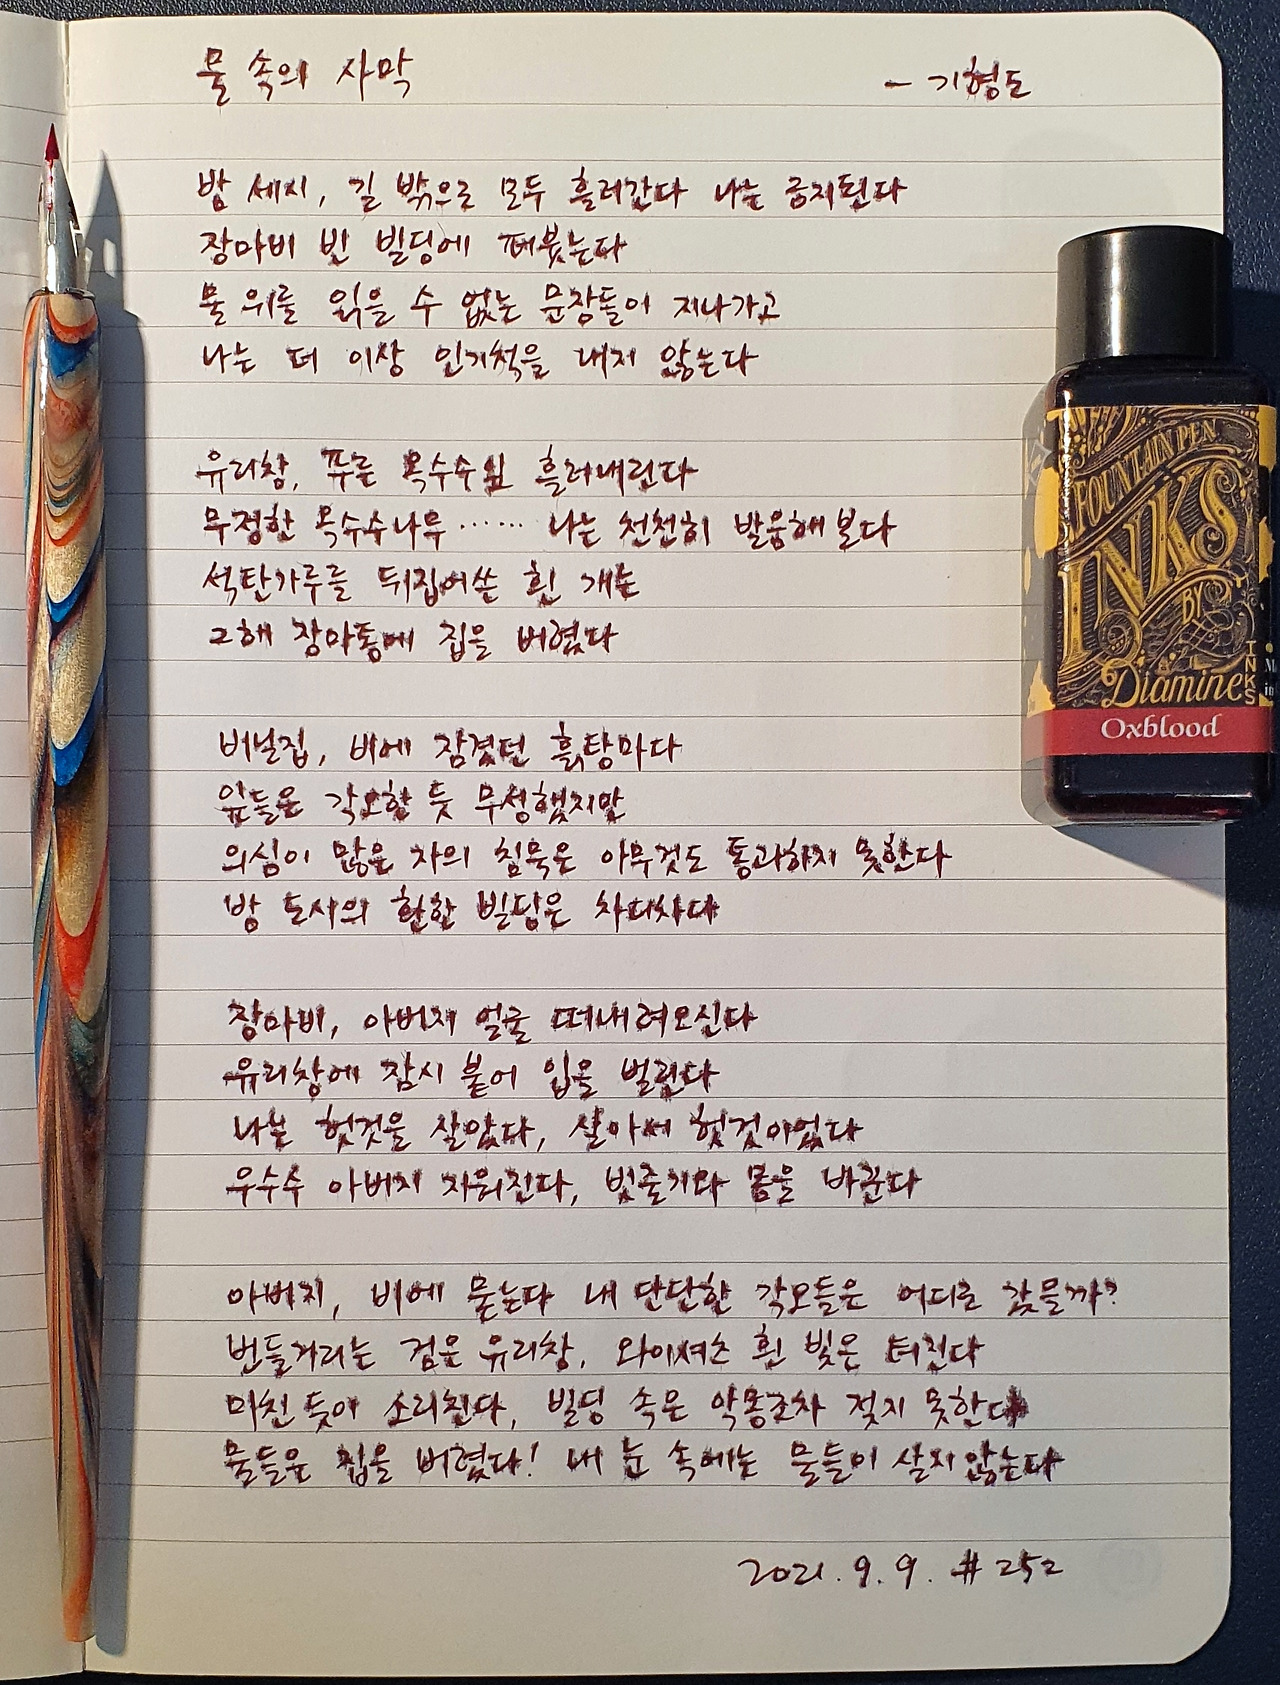 물 속의 사막 - 기형도
밤 세시, 길 밖으로 모두 흘러간다 나는 금지된다
장마비 빈 빌딩에 퍼붓는다
물 위를 읽을 수 없는 문장들이 지나가고
나는 더 이상 인기척을 내지 않는다
유리창, 푸른 옥수수잎 흘러내린다
무정한 옥수수나무…… 나는 천천히 발음해본다
석탄가루를 뒤집어쓴 흰 개는
그해 장마통에 집을 버렸다
비닐집, 비에 잠겼던 흙탕마다
잎들은 각오한 듯 무성했지만
의심이 많은 자의 침묵은 아무것도 통과하지 못한다
밤 도시의 환한 빌딩은 차디차다
장마비, 아버지 얼굴 떠내려오신다
유리창에 잠시 붙어 입을 벌린다
나는 헛것을 살았다, 살아서 헛것이었다
우수수 아버지 지워진다, 빗줄기와 몸을 바꾼다
아버지, 비에 묻는다 내 단단한 각오들은 어디로 갔을까?
번들거리는 검은 유리창, 와이셔츠 흰 빛은 터진다
미친 듯이 소리친다, 빌딩 속은 악몽조차 젖지 못한다
물들은 집을 버렸다! 내 눈 속에는 물들이 살지 않는다
2021. 9. 9. #252
FOUNTAIN PEN
INKS
BY
Diamine
INKS
Oxblood